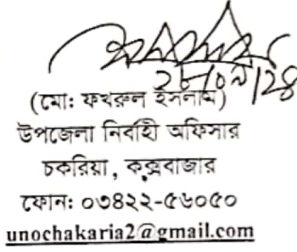 ২৮/০৯/২৪
(মোঃ ফখরুল ইসলাম)
উপজেলা নির্বাহী অফিসার
চকরিয়া, কক্সবাজার
ফোনঃ ০৩৪২২-৫৬০৫০
unochakaria2@gmail.com